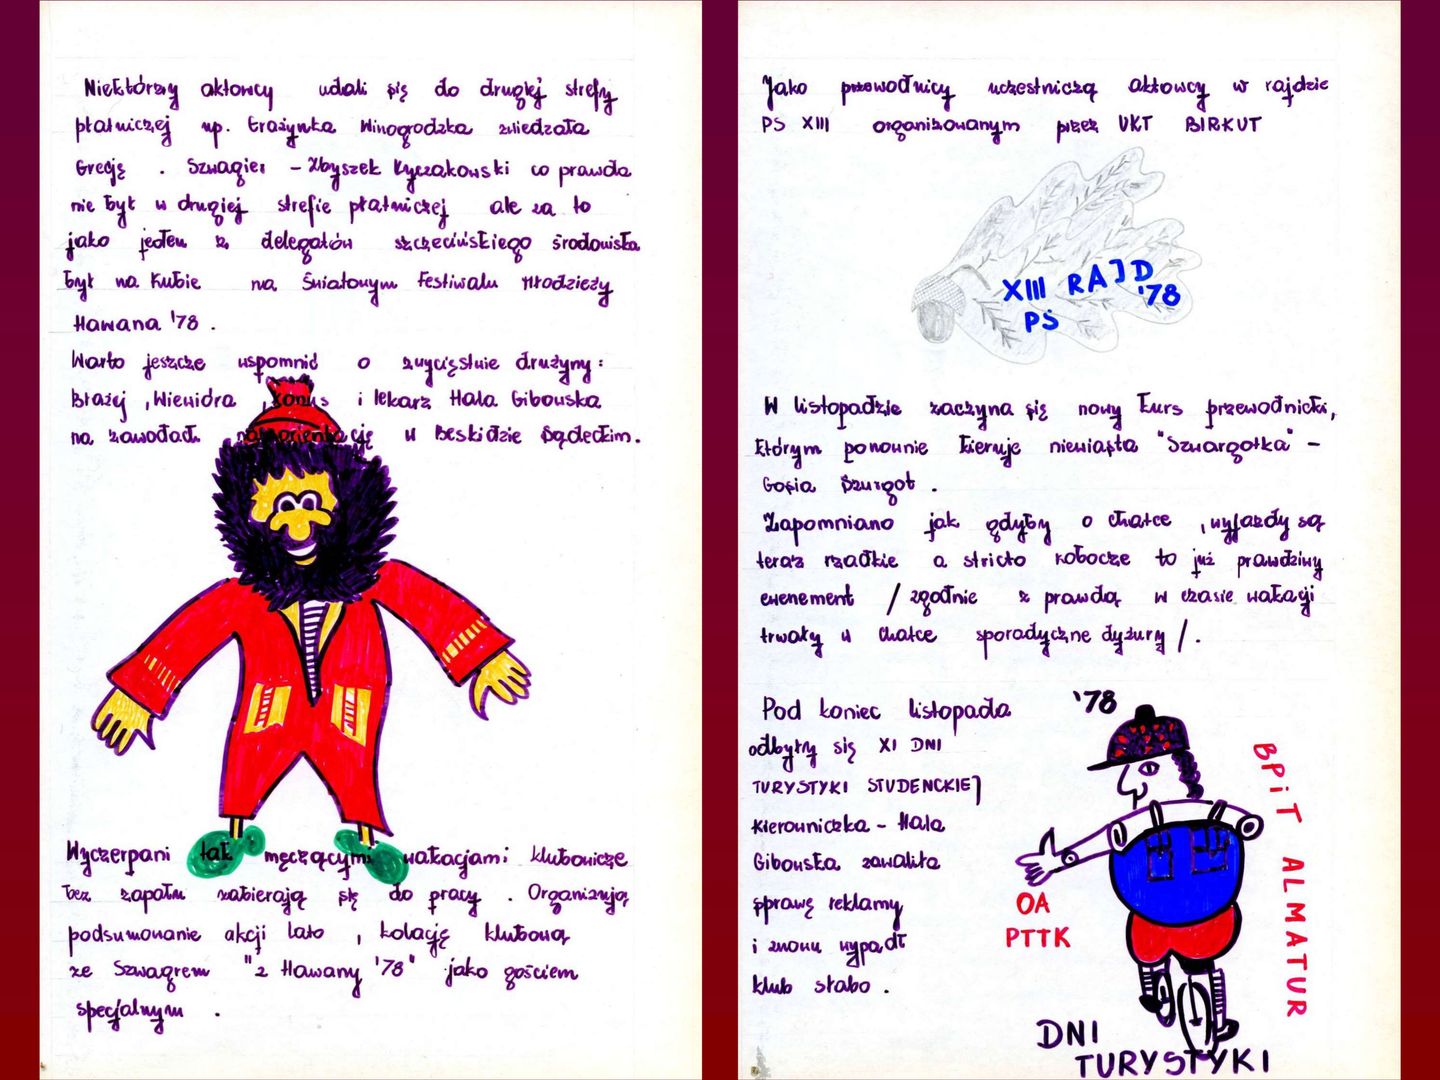 Niektórzy aktowcy udali się do drugiej strefy
płatniczej np. Grażynka Winogrodzka zwiedzała
Grecję . Szwagier - Zbyszek Kyczakowski co prawda
nie był w drugiej strefie płatniczej ale za to
jako jeden z delegatów szczecińskiego środowiska
był na Kubie na Światowym Festiwalu Młodzieży
Hawana '78 .
Warto jeszcze wspomnić o zwycięstwie drużyny :
Błażej , Wiewióra , Konus i lekarz Hala Gibowska
na zawodach na orientację w Beskidzie Sądeckim.
Wyczerpani tak męczącymi wakacjami klubowicze
bez zapału zabierają się do pracy . Organizują
podsumowanie akcji lato , kolację klubową
ze Szwagrem "z Hawany '78" jako gościem
specjalnym .
Jako przewodnicy uczestniczą aktowcy w rajdzie
PS XIII organizowanym przez UKT BIRKUT
XIII RAJD '78
PS
W listopadzie zaczyna się nowy kurs przewodnicki,
którym ponownie kieruje niewiasta "Szwargotka" -
Gosia Szurgot .
Zapomniano jak gdyby o chatce , wyjazdy są
teraz rzadkie a stricto robocze to już prawdziwy
ewenement / zgodnie z prawdą w czasie wakacji
trwały w chatce sporadyczne dyżury / .
Pod koniec listopada '78
odbyły się XI DNI
TURYSTYKI STUDENCKIEJ
Kierowniczka - Hala
Gibowska zawaliła
sprawę reklamy
i znowu wypadł
klub słabo .
OA
PTTK
BPiT ALMATUR
DNI
TURYSTYKI